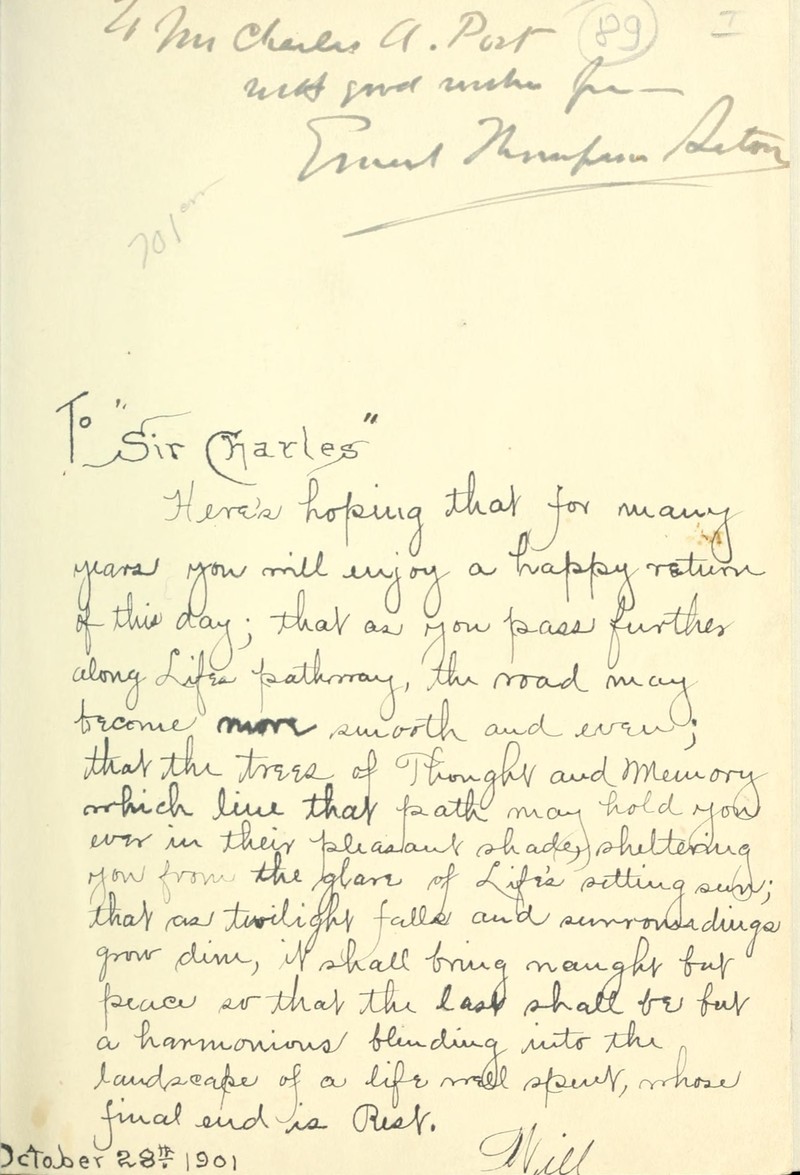 To Mr Charles A. Post
89
I
with good wishes fr—
Ernest Thompson Seton
To "Sir Charles"
Here's hoping that for many
years you will enjoy a happy return
of this day; that as you pass further
along Life's pathway, the road may
become more smooth and even;
that the trees of Thought and Memory
which line that path may hold you
ever in their pleasant shade, sheltering
you from the glare of Life's setting sun;
that as twilight falls and surroundings
grow dim, it shall bring naught but
peace so that the last shall be but
a harmonious blending into the
landscape of a life well spent, whose
final end is Rest.
October 28th 1901
Will